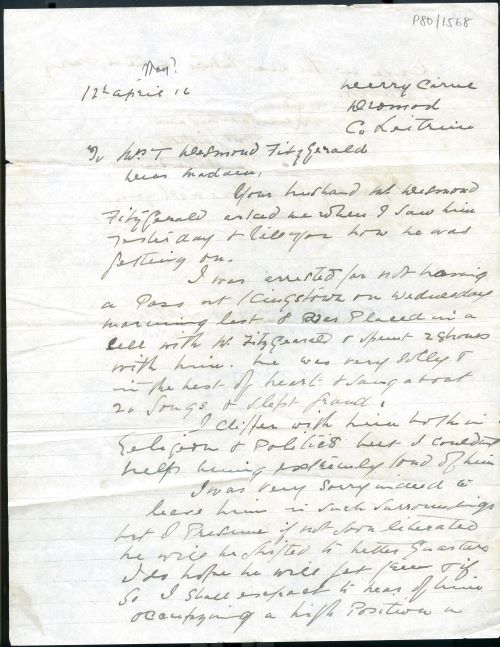 P80/1568
May?
12th april 16
Derry Cirne
Dromod
Co Leitrim
To Mrs T Desmond FitzGerald
Dear Madam,
Your husband Mr Desmond
FitzGerald asked me when I saw him
yesterday to tell you how he was
getting on.
I was arrested for not having
a Pass at Kingstown on Wednesday
morning last & was Placed in a
cell with Mr FitzGerald & spent 2 hours
with him. he was very Jolly &
in the best of heart & sang about
20 Songs & slept grand.
I differ with him both in
Religion & Politics but I couldnt
help being extremely fond of him
I was very sorry indeed to
leave him in such surroundings
but I Presume if not soon liberated
he will be shifted to better Quarters
I do hope he will get free & if
So I shall expect to hear of him
occupying a high Position in